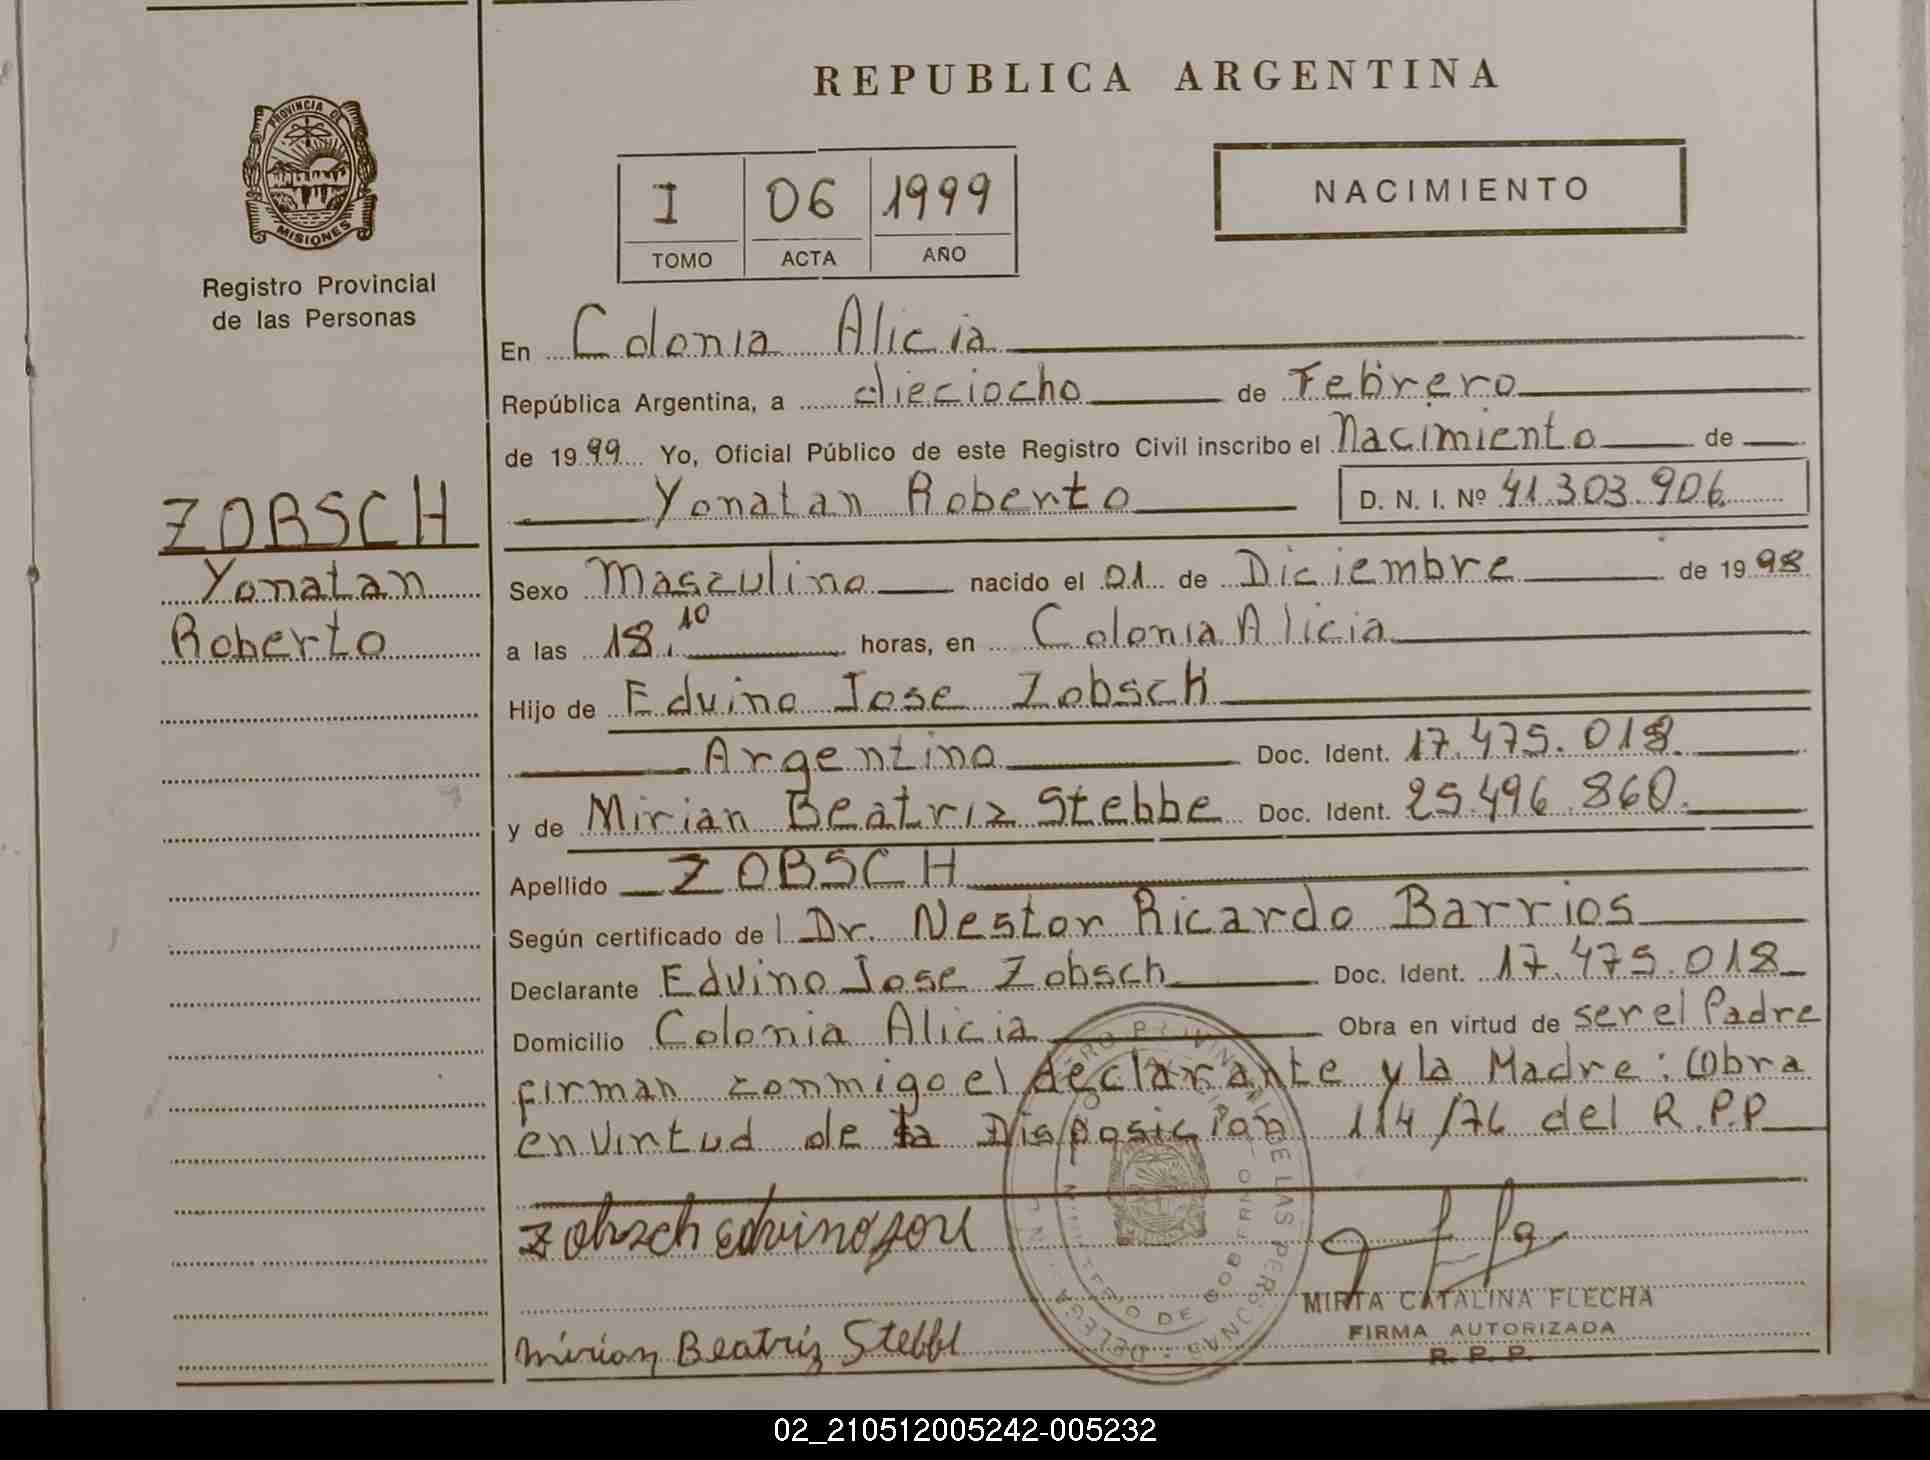 REPUBLICA ARGENTINA
PROVINCIA DE
MISIONES
Registro Provincial
de las Personas
I 06 1999
TOMO ACTA AÑO
NACIMIENTO
ZOBSCH
Yonatan
Roberto
En Colonia Alicia
República Argentina, a dieciocho de Febrero
de 1999 Yo, Oficial Público de este Registro Civil inscribo el Nacimiento de
Yonatan Roberto D. N. I. Nº 41.303.906
Sexo Masculino nacido el 01 de Diciembre de 1998
a las 18.10 horas, en Colonia Alicia
Hijo de Edvino Jose Zobsch
Argentino Doc. Ident. 17.475.018
y de Mirian Beatriz Stebbe Doc. Ident. 25.496.860.
Apellido ZOBSCH
Según certificado de l Dr. Nestor Ricardo Barrios
Declarante Edvino Jose Zobsch Doc. Ident. 17.475.018
Domicilio Colonia Alicia Obra en virtud de ser el Padre
firman conmigo el declarante y la Madre: Obra
en virtud de la Disposicion 114/76 del R.P.P
Zobsch edvino jose
Mirian Beatriz Stebbe
MIRTA CATALINA FLECHA
FIRMA AUTORIZADA
R. P. P.
02_210512005242-005232